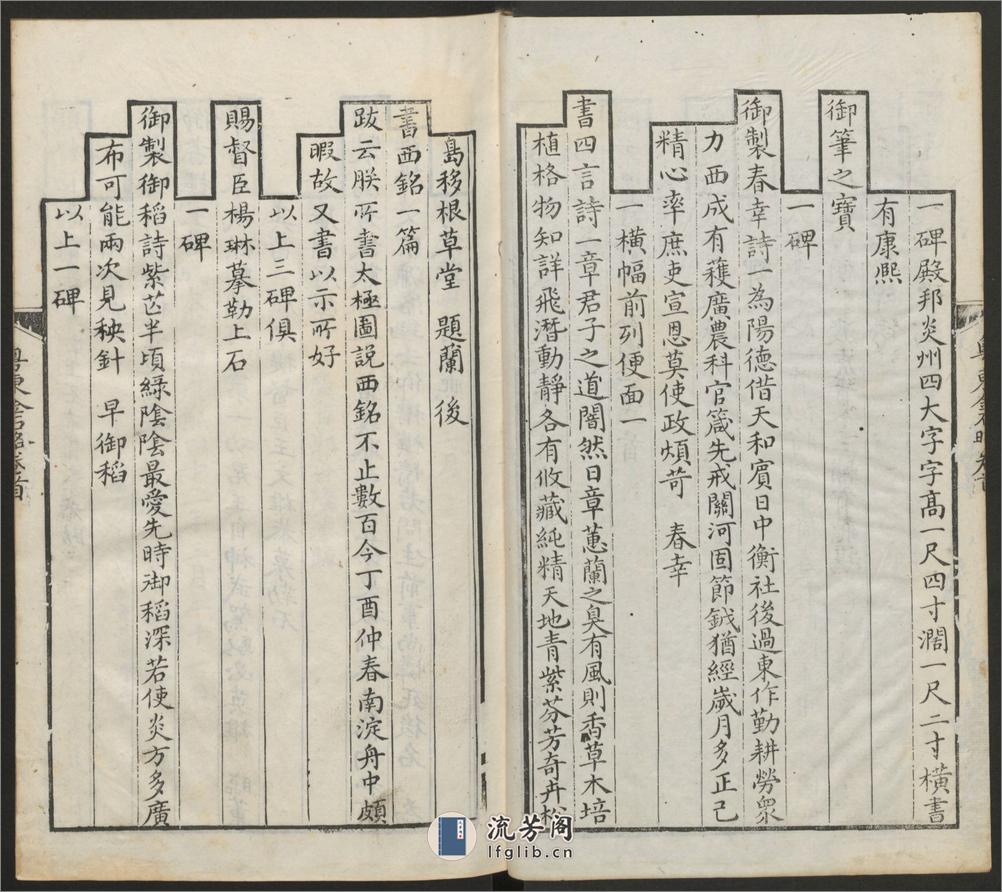 一碑殿邦炎州四大字字高一尺四寸濶一尺二寸横書
有康熙
御筆之寳
一碑
御製春幸詩一為陽德借天和賓日中衡社後過東作勤耕勞衆
力西成有穫廣農科官箴先戒關河固節鉞猶經歲月多正己
精心率庶吏宣恩莫使政煩苛　春幸
一横幅前列便面一
書四言詩一章君子之道闇然日章蕙蘭之臭有風則香草木培
植格物知詳飛潛動靜各有攸藏純精天地青紫芬芳奇卉松
島移根草堂　題蘭　後
書西銘一篇
跋云朕所書太極圖説西銘不止數百今丁酉仲春南淀舟中頗
暇故又書以示所好
以上三碑俱
賜督臣楊琳摹勒上石
一碑
御製御稻詩紫芒半頃綠陰陰最愛先時御稻深若使炎方多廣
布可能兩次見秧針　早御稻
以上一碑
粤東金石略卷首
流芳阁
lfglib.cn